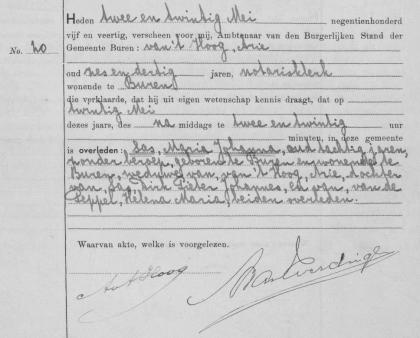 Heden twee en twintig Mei negentienhonderd
vijf en veertig, verscheen voor mij, Ambtenaar van den Burgerlijken Stand der
Gemeente Buren: van 't Hoog, Arie
No. 20
oud zes en dertig jaren, notarisklerk
wonende te Buren
die verklaarde, dat hij uit eigen wetenschap kennis draagt, dat op
twintig Mei
dezes jaars, des na middags te twee en twintig uur
minuten, in deze gemeente
is overleden: Sas, Maria Johanna, oud tachtig jaren,
zonder beroep, geboren te Buren en wonende te
Buren, weduwe van, van 't Hoog, Arie, dochter
van, Sas, Dirk Pieter Johannes, en van, van de
Seppel, Helena Maria, beiden overleden.
Waarvan akte, welke is voorgelezen.
AvtHoog